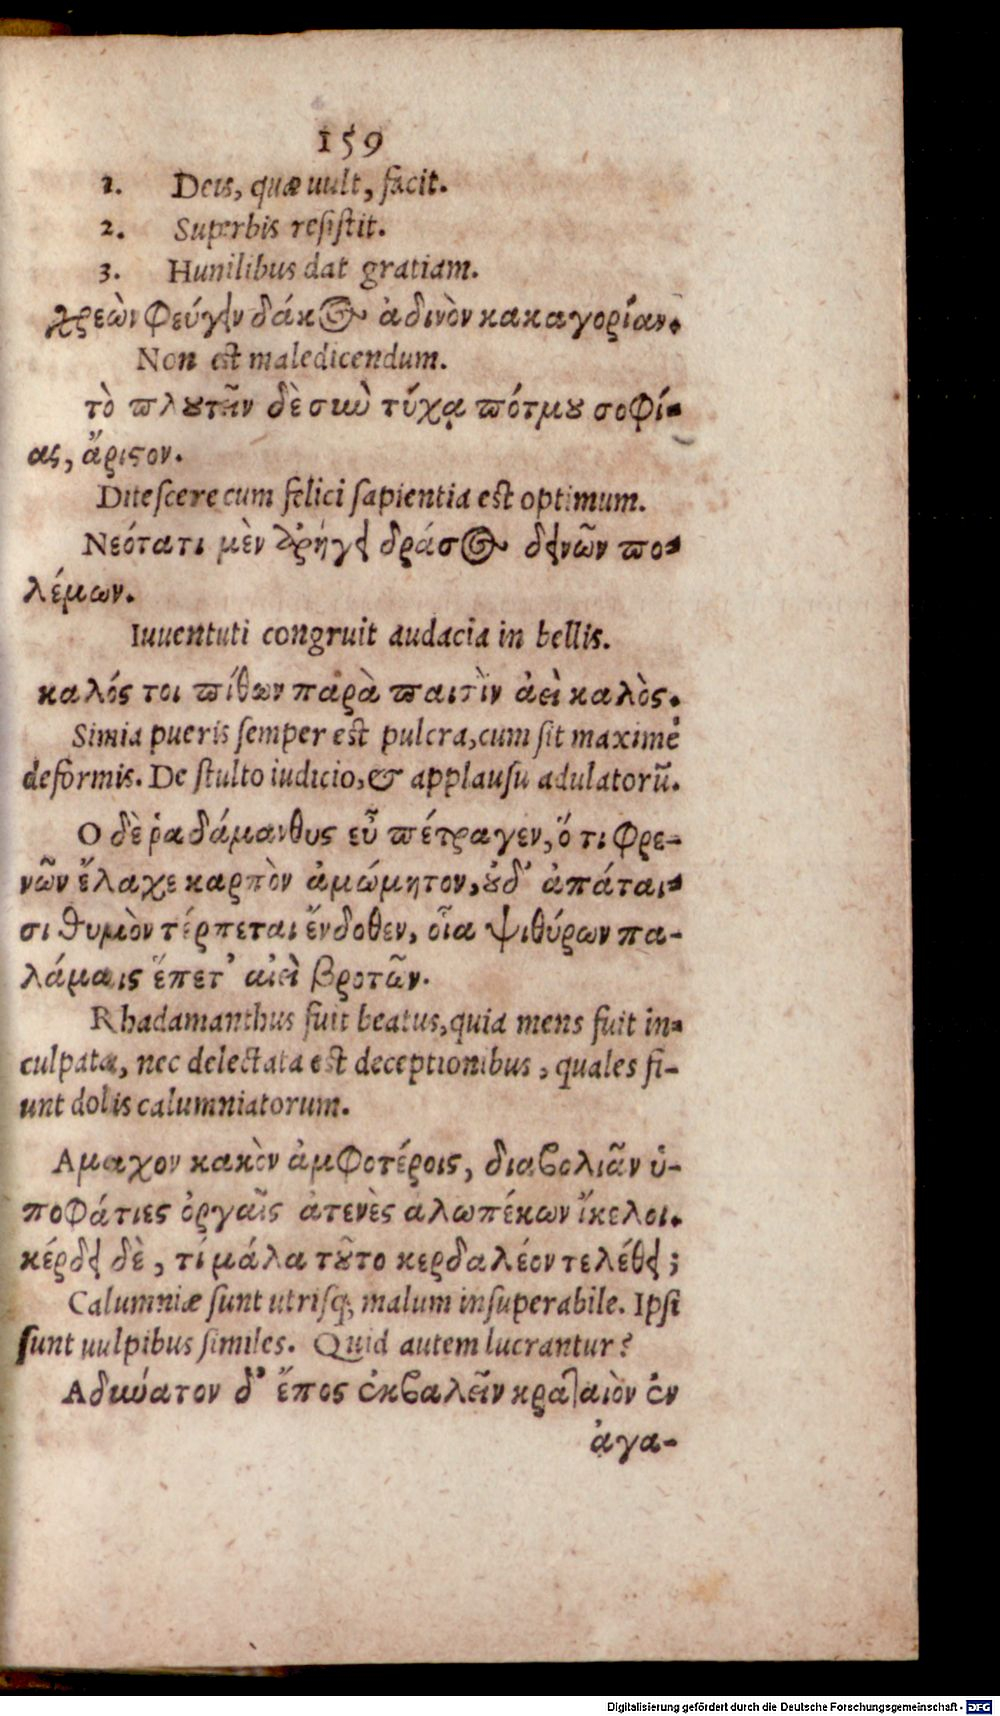 159
1. Deus, quæ uult, facit.
2. Superbis resistit.
3. Humilibus dat gratiam.
χρεὼν φεύγειν δάκος ἀδινὸν κακαγορίαν.
Non est maledicendum.
τὸ πλουτεῖν δὲ σιὺ τύχᾳ πότμου σοφί-
ας, ἄριστον.
Ditescere cum felici sapientia est optimum.
Νεότατι μὲν ἀρήγει θράσος δεινῶν πο-
λέμων.
Iuuentuti congruit audacia in bellis.
καλός τοι πίθων παρὰ παισὶν ἀεὶ καλὸς.
Simia pueris semper est pulcra, cum sit maximè
deformis. De stulto iudicio, & applausu adulatorū.
Ο δὲ ῥαδάμανθυς εὖ πέπραγεν, ὅ τι φρε-
νῶν ἔλαχε καρπὸν ἀμώμητον, ουδ' ἀπάται-
σι θυμὸν τέρπεται ἔνδοθεν, οἷα ψιθύρων πα-
λάμαις ἕπετ' αἰεὶ βροτῶν.
Rhadamanthus fuit beatus, quia mens fuit in-
culpata, nec delectata est deceptionibus, quales fi-
unt dolis calumniatorum.
Αμαχον κακὸν ἀμφοτέροις, διαβολιᾶν ὑ-
ποφάτιες ὀργαῖς ἀτενὲς αλωπέκων ἵκελοι.
κέρδει δὲ, τί μάλα τοῦτο κερδαλέον τελέθει;
Calumniæ sunt utrisq; malum insuperabile. Ipsi
sunt uulpibus similes. Quid autem lucrantur?
Αδύνατον δ' ἔπος ἐκβαλεῖν κραταιὸν ἐν
ἀγα-
Digitalisierung gefördert durch die Deutsche Forschungsgemeinschaft - DFG